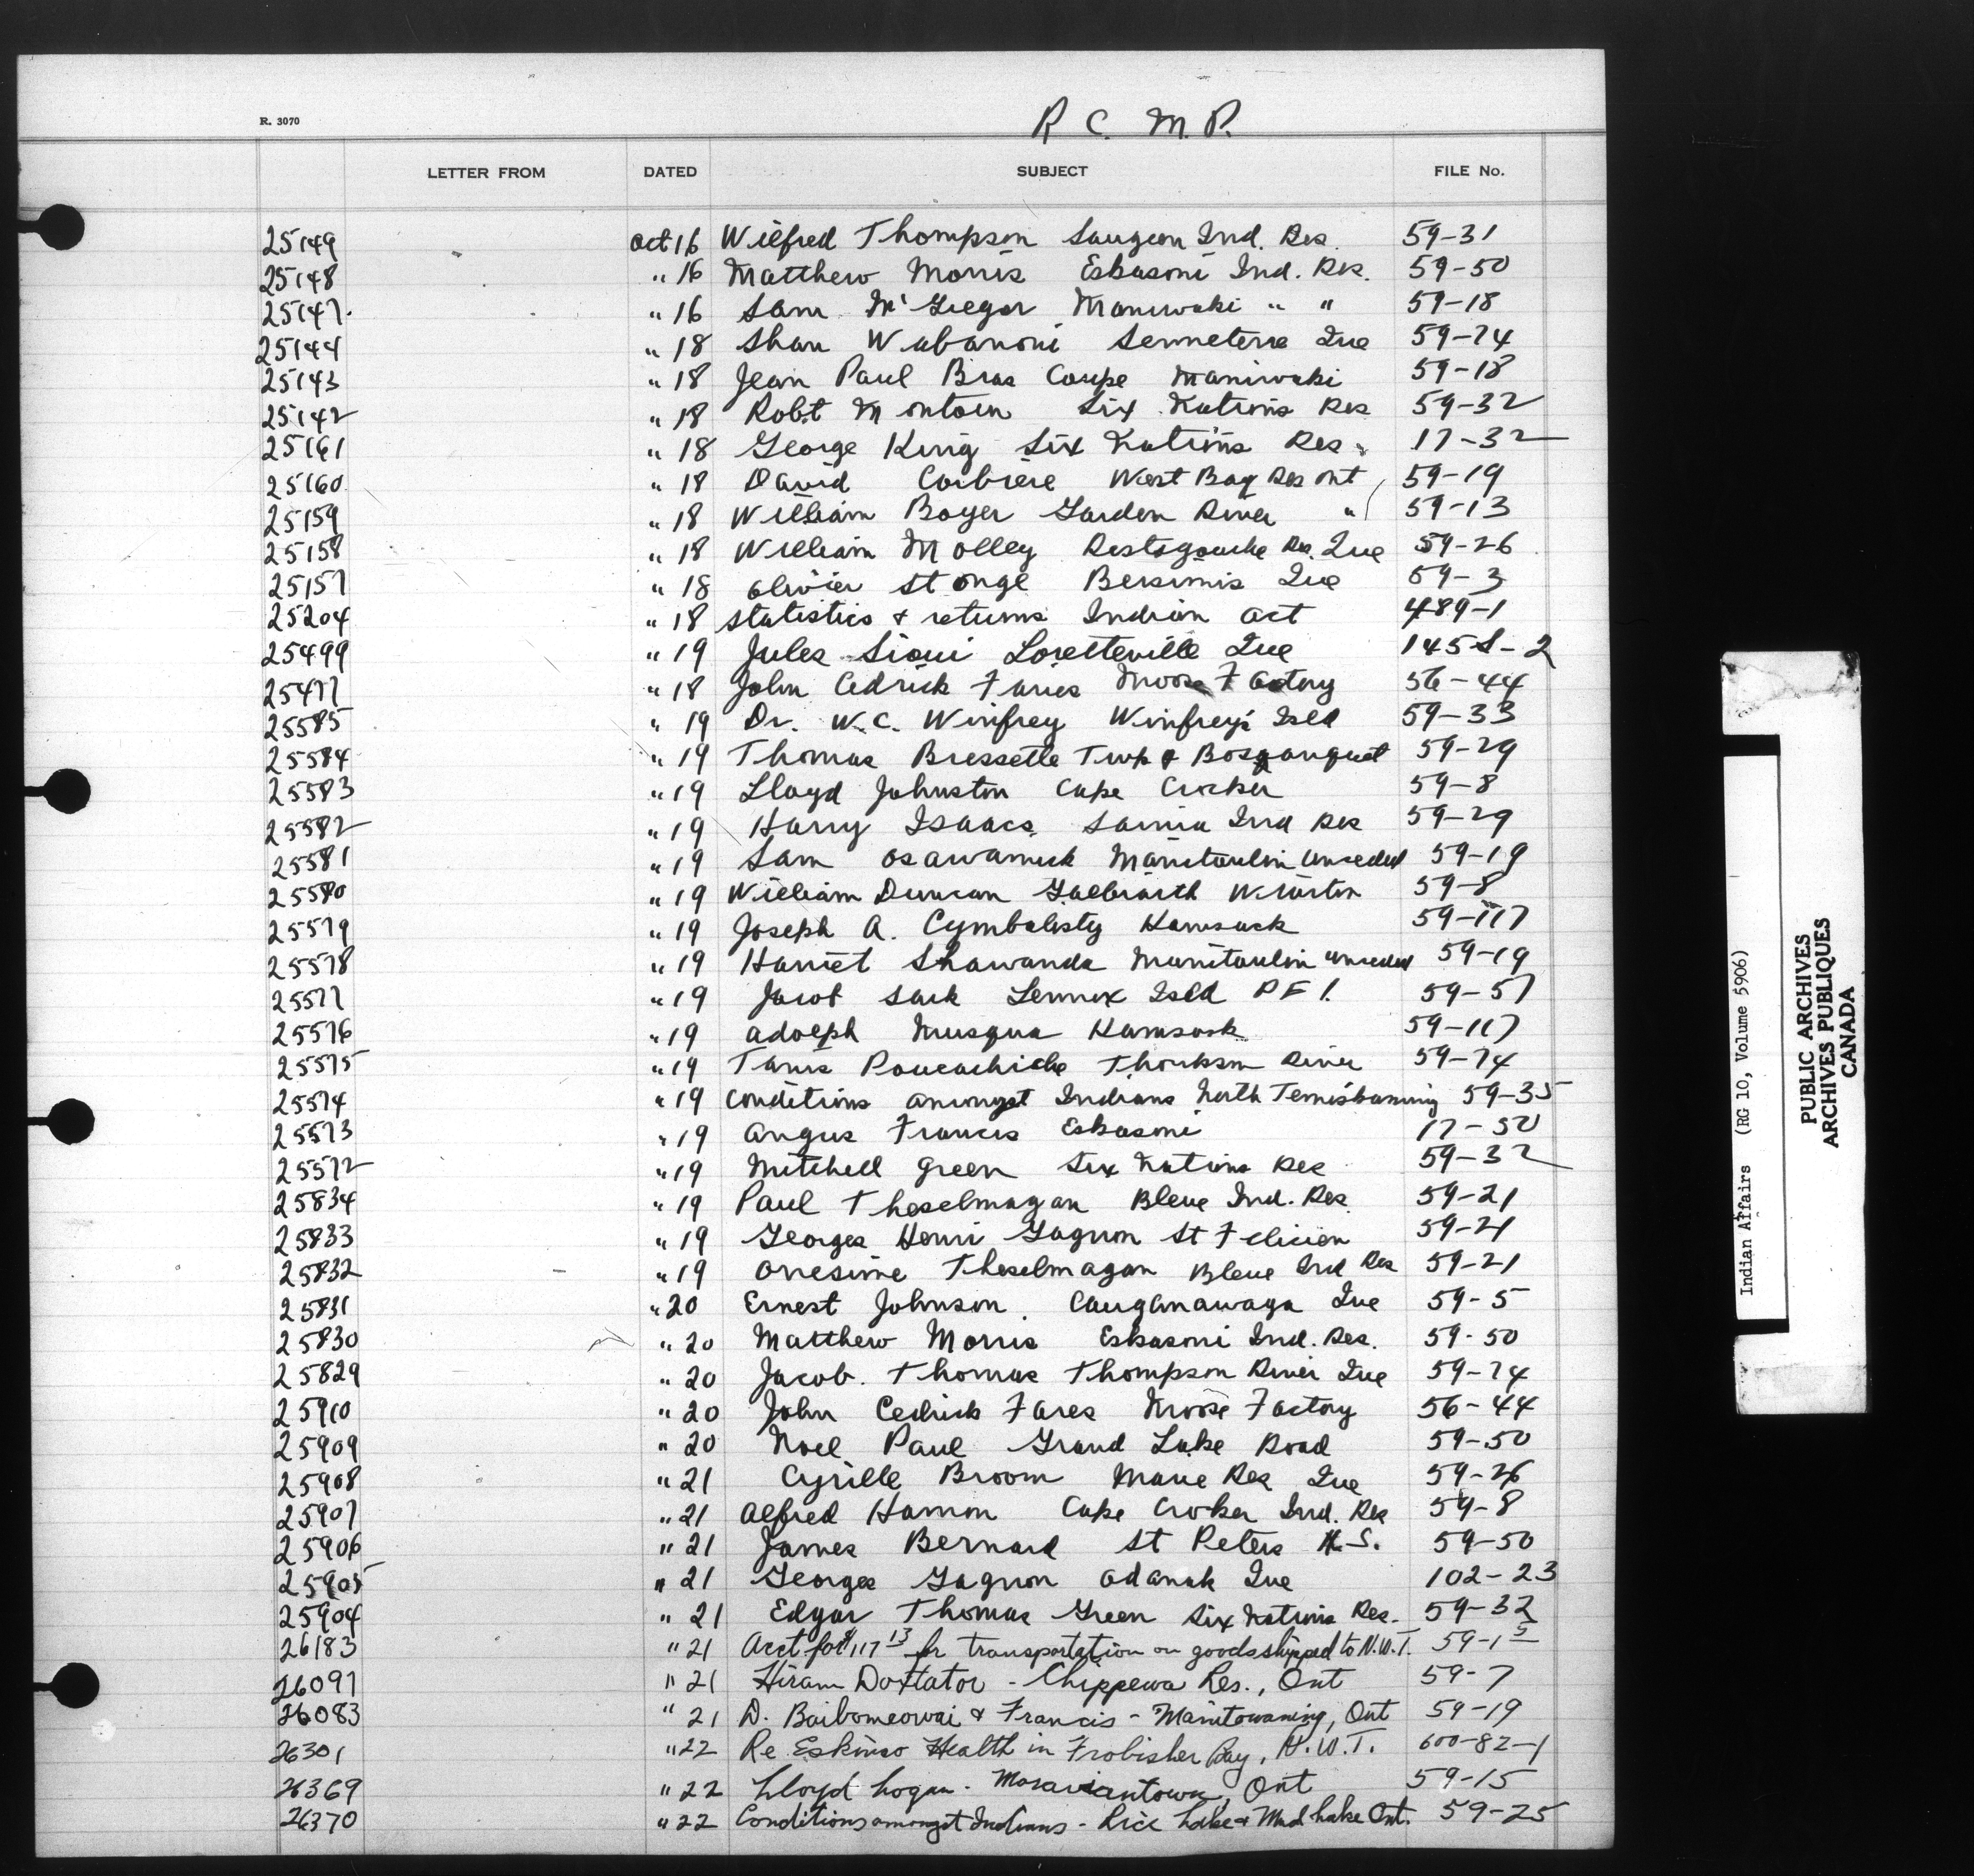 R. 3070
R C. M. P.
LETTER FROM DATED SUBJECT FILE No.
25149 Oct 16 Wilfred Thompson Saugeen Ind. Res. 59-31
25148 " 16 Matthew Morris Eskasoni Ind. Res. 59-50
25147 " 16 Sam McGregor Maniwaki " " 59-18
25144 " 18 Shan Wabanoni Senneterre Que 59-74
25143 " 18 Jean Paul Bras Coupe Maniwaki 59-18
25142 " 18 Robt Six Nations Res 59-32
25161 " 18 George King Six Nations Res. 17-32
25160 " 18 David Corbiere West Bay Res Ont 59-19
25159 " 18 William Boyer Garden River " 59-13
25158 " 18 William Molley Restigouche Res. Que 59-26
25157 " 18 Olivier St Onge Bersimis Que 59-3
25204 " 18 Statistics & returns Indian Act 489-1
25499 " 19 Jules Sioui Loretteville Que 145S-2
25477 " 18 John Cedrick Faries Moose Factory 56-44
25585 " 19 Dr. W.C. Winfrey Winfrey's Isld 59-33
25584 " 19 Thomas Bressette Twp of Bosanquet 59-29
25583 " 19 Lloyd Johnston Cape Croker 59-8
25582 " 19 Harry Isaacs Sarnia Ind Res 59-29
25581 " 19 Sam Osawamick Manitoulin Unceded 59-19
25580 " 19 William Duncan Galbraith Wiarton 59-8
25579 " 19 Joseph A. Cymbalisty Kamsack 59-117
25578 " 19 Harriet Shawanda Manitoulin Unceded 59-19
25577 " 19 Jacob Sark Lennox Isld P E I. 59-57
25576 " 19 Adolph Musqua Kamsack 59-117
25575 " 19 River 59-74
25574 " 19 Conditions amongst Indians North Temiskaming 59-35
25573 " 19 Angus Francis Eskasoni 17-50
25572 " 19 Mitchell Green Six Nations Res 59-32
25834 " 19 Paul Theselmagan Bleue Ind. Res. 59-21
25833 " 19 Georges Henri Gagnon St Felicien 59-21
25832 " 19 Onesime Theselmagan Bleue Ind Res 59-21
25831 " 20 Ernest Johnson Caughnawaga Que 59-5
25830 " 20 Matthew Morris Eskasoni Ind. Res. 59-50
25829 " 20 Jacob. Thomas Thompson River Que 59-74
25910 " 20 John Cedrick Fares Moose Factory 56-44
25909 " 20 Noel Paul Grand Lake Road 59-50
25908 " 21 Cyrille Broom Maria Res Que 59-26
25907 " 21 Alfred Hamon Cape Croker Ind. Res 59-8
25906 " 21 James Bernard St Peters N.S. 59-50
25905 " 21 Georges Gagnon Odanak Que 102-23
25904 " 21 Edgar Thomas Green Six Nations Res. 59-32
26183 " 21 Acct for $117 13 for transportation on goods shipped to N.W.T. 59-1 5
26097 " 21 Hiram Doxtator - Chippewa Res., Ont 59-7
26083 " 21 D. Baibomeowai & Francis - Manitowaning, Ont 59-19
26301 " 22 Re Eskimo Health in Frobisher Bay, N.W.T. 600-82-1
26369 " 22 Lloyd Logan - Moraviantown, Ont 59-15
26370 " 22 Conditions amongst Indians - Rice Lake & Mud Lake Ont. 59-25
Indian Affairs (RG 10, Volume 5906)
PUBLIC ARCHIVES
ARCHIVES PUBLIQUES
CANADA